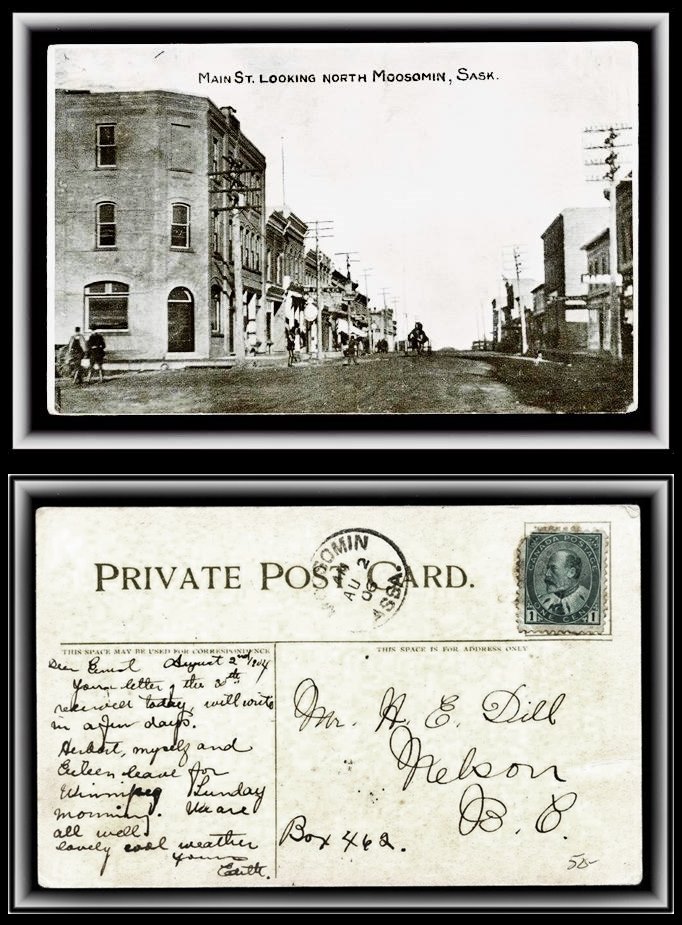 MAIN ST. LOOKING NORTH MOOSOMIN, SASK.
PRIVATE POST CARD.
MOOSOMIN
AM
AU 2
ASSA.
CANADA POSTAGE
1 1
ONE CENT
THIS SPACE MAY BE USED FOR CORRESPONDENCE
THIS SPACE IS FOR ADDRESS ONLY
Dear Ernest August 2nd/
Your letter of the 30th
received today, will write
in a few days.
Herbert, myself and
Eileen leave for
Winnipeg Sunday
morning. We are
all well
lovely cool weather
Yours
Edith.
Mr. H. E. Dill
Nelson
B. C.
Box 462.
50-